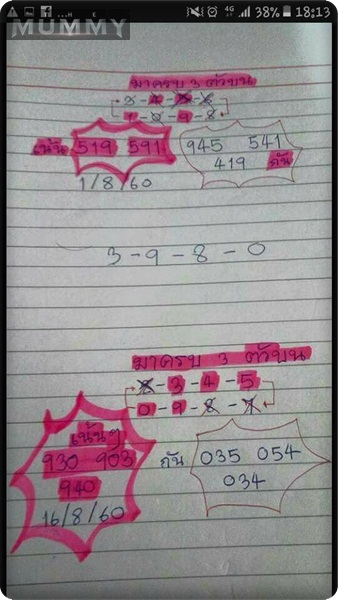 MUMMY
4G 38% 18:13
มาครบ 3 ตัวบน
1-0-9-8
เน้น 519 591 945 541
419 กัน
1/8/60
3-9-8-0
มาครบ 3 ตัวบน
-3-4-5
0-9-8-7
เน้นๆ
930 903 กัน 035 054
940 034
16/8/60